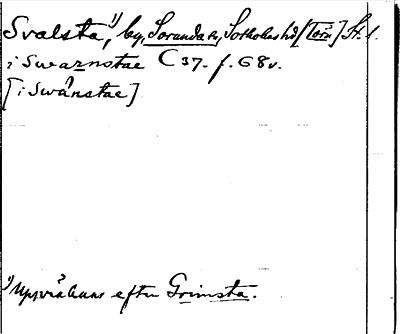 Svalsta¹⁾, by, Sorunda sn, Sotholms hd [Törn] St. l.
i Swarnstae C 37. f. 68v.
[i Swånstae]
¹⁾ Uppräknas efter Grimsta.